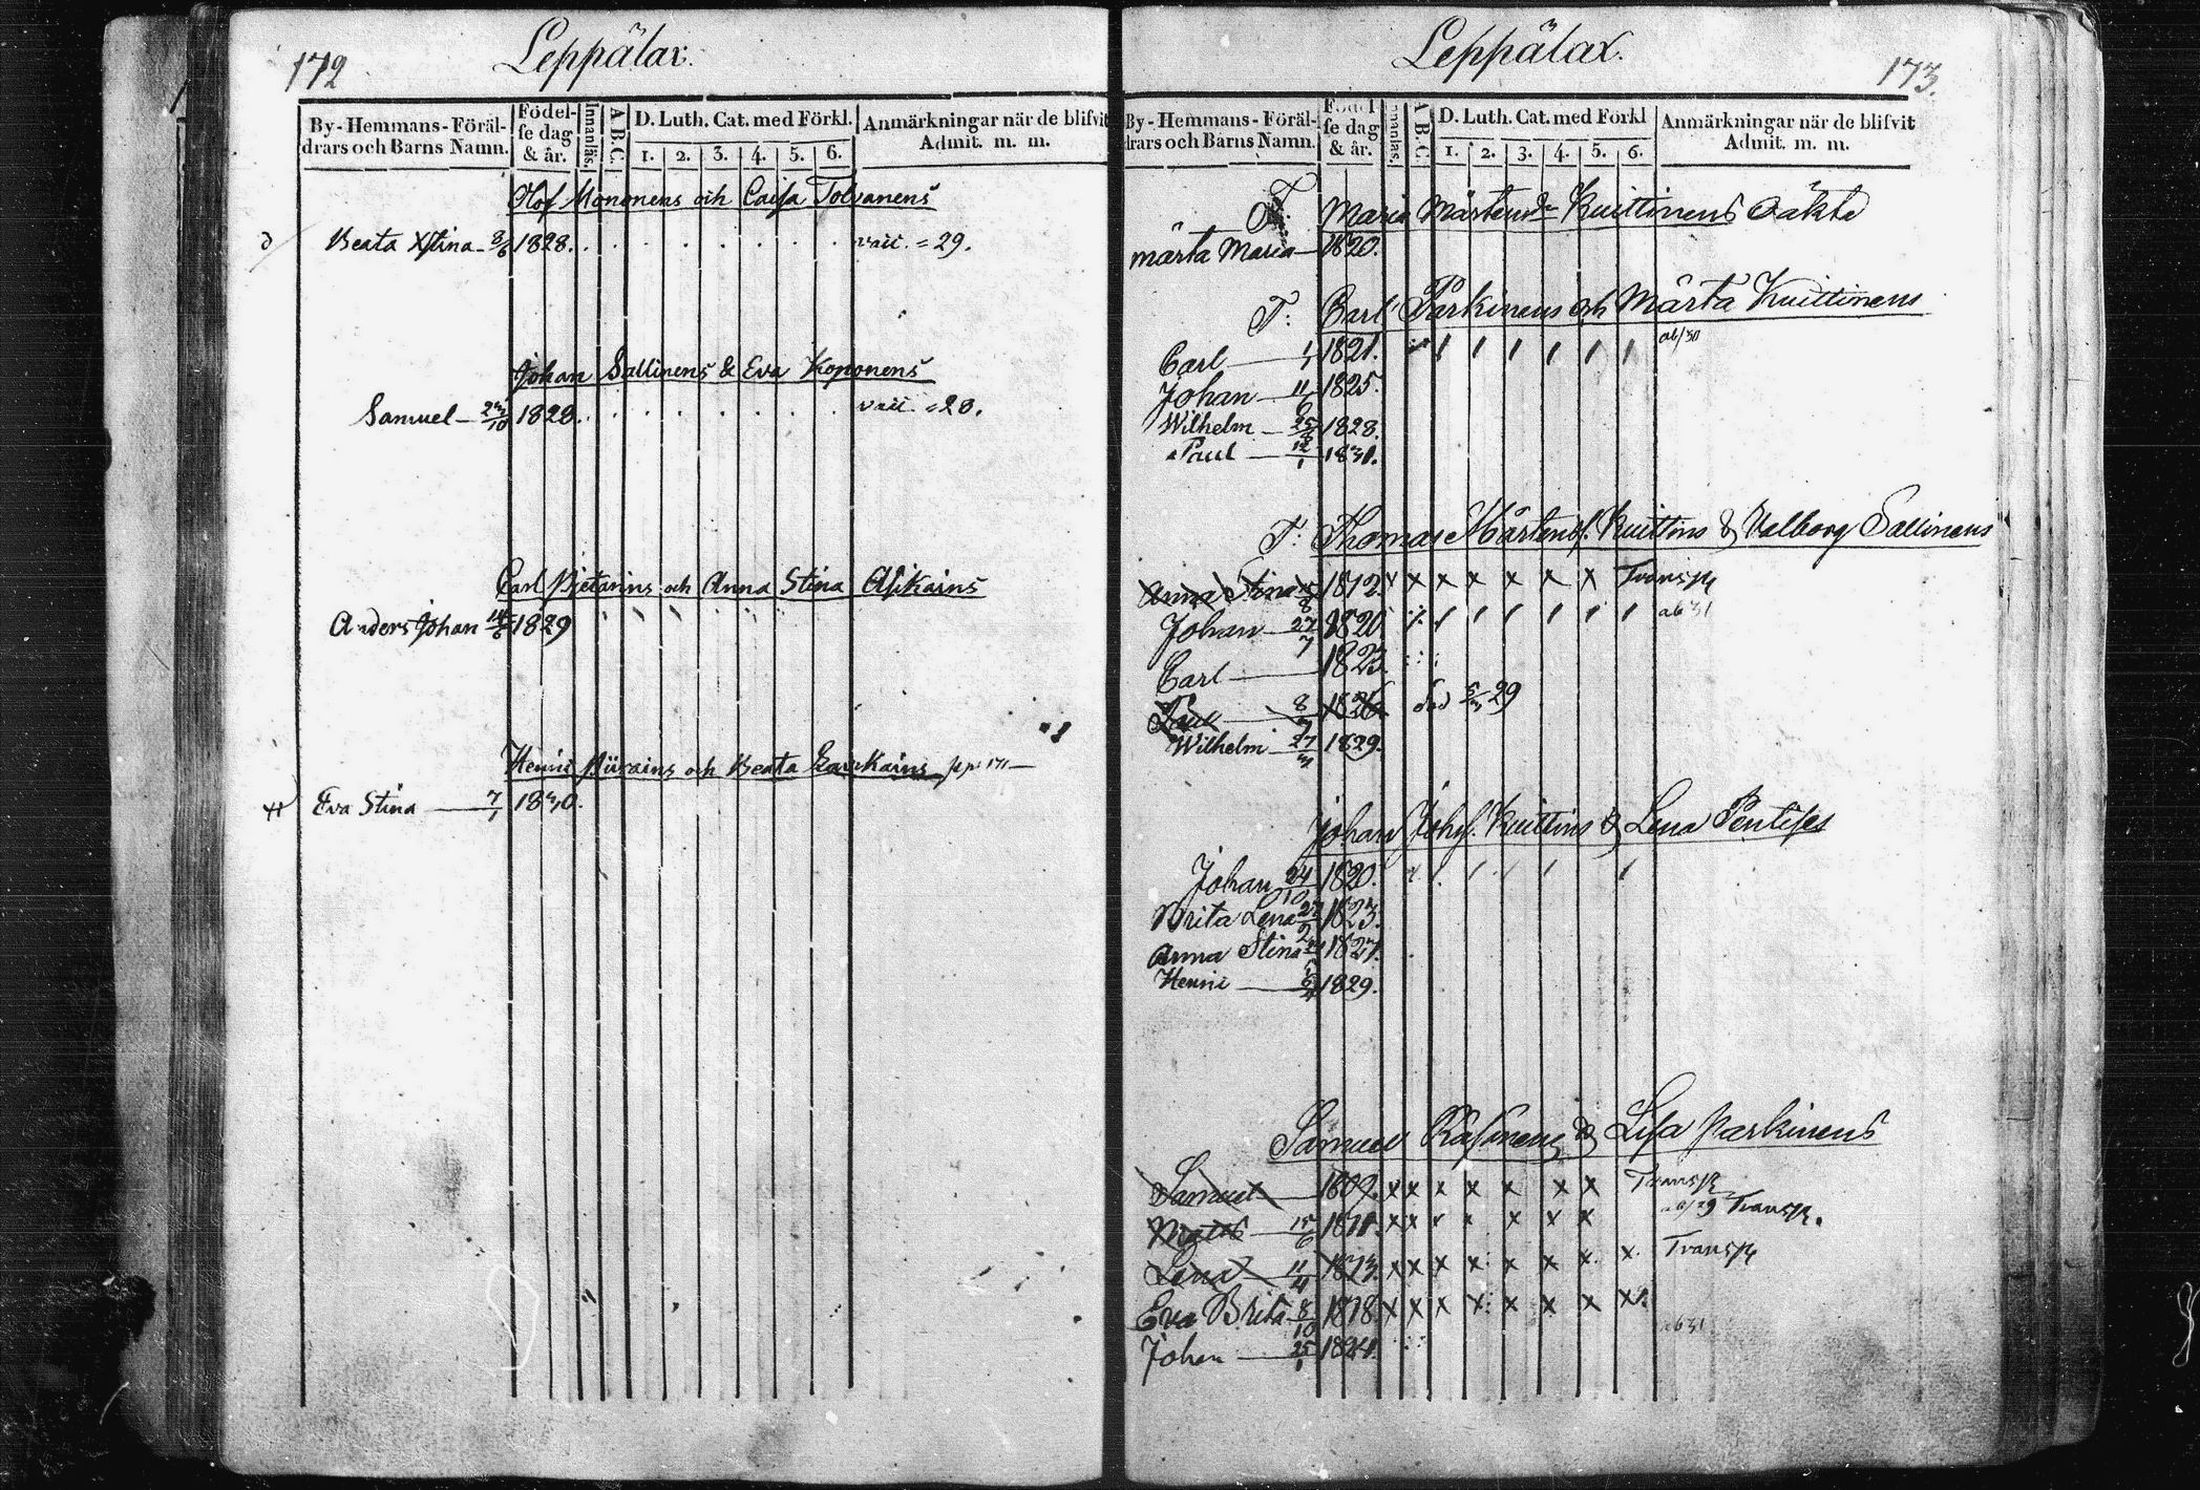 172
Leppälax.
By-Hemmans-Föräl-
drars och Barns Namn.
Födel-
se dag
& år.
Innanläs.
A B C.
D. Luth. Cat. med Förkl.
1. 2. 3. 4. 5. 6.
Anmärkningar när de blifvit
Admit. m. m.
Olof Mononens och Caisa Tolvanens
Beata Xstina 3/6 1828. vacc. 29.
Johan Sallinens & Eva Koponens
Samuel 23/10 1828. vacc. 28.
Carl Pietarins och Anna Stina Asikains
Anders Johan 14/6 1829
Henric Pürains och Beata
Eva Stina 7/1 1830.
Leppälax.
173.
By-Hemmans-Föräl-
drars och Barns Namn.
Födel-
se dag
& år.
Innanläs.
A B C.
D. Luth. Cat. med Förkl
1. 2. 3. 4. 5. 6.
Anmärkningar när de blifvit
Admit. m. m.
T. Maria Mårtensdr Kuittinens oäkta
Märta Maria 1820.
T: Carl Parkinens och Märta Kuittinens
Carl 1821. ab/30
Johan 11/6 1825.
Wilhelm 1828.
Paul 12/1 1831.
T: Thomas Mårtens. Kuittins & Valborg Sallinens
Anna Stina 1812. x x x x x x x Transp
Johan 27/7 1820 ab 31
Carl 1823
Paul 8/7 1826 död 5/3 29
Wilhelm 27/3 1829.
Johan Johs. Kuittins & Lena Pentises
Johan 24/10 1820.
Brita Lena 27/2 1823.
Anna Stina 1827.
Henric 1829.
Samuel Räsänens & Lisa Parkinens
Samuel 1809. x x x x x x x Transp
Matts 15/6 1811. x x x x x x x ab/29 Transp.
Lena 11/4 1813. x x x x x x x x Transp
Eva Brita 8/10 1818. x x x x x x x x ab 31
Johan 25/1 1824.